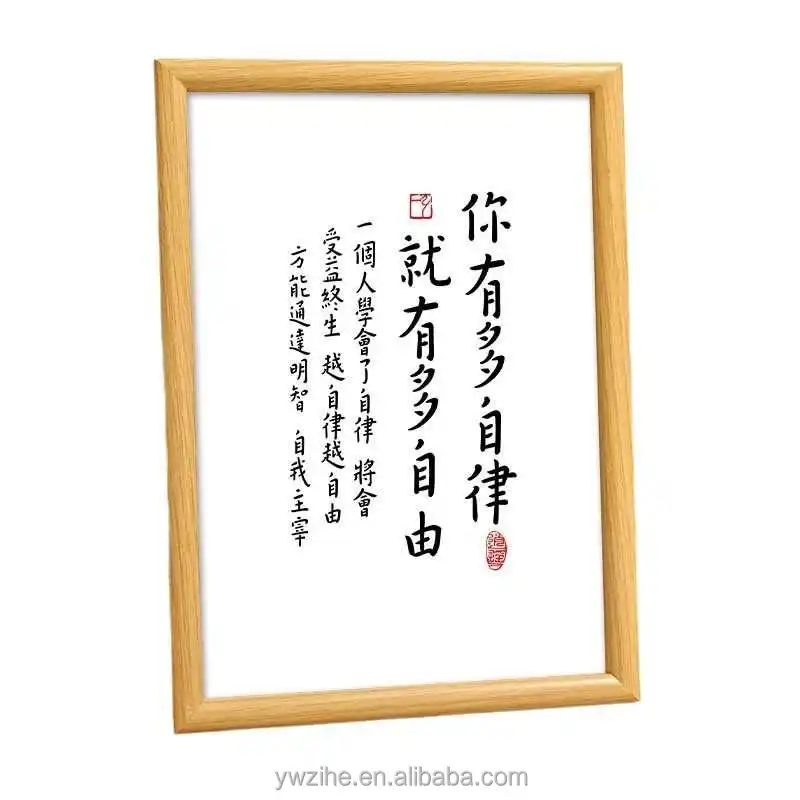 你有多多自律
就有多多自由
一個人學會了自律 將會
受益終生 越自律越自由
方能通達明智 自我主宰
ywzihe.en.alibaba.com